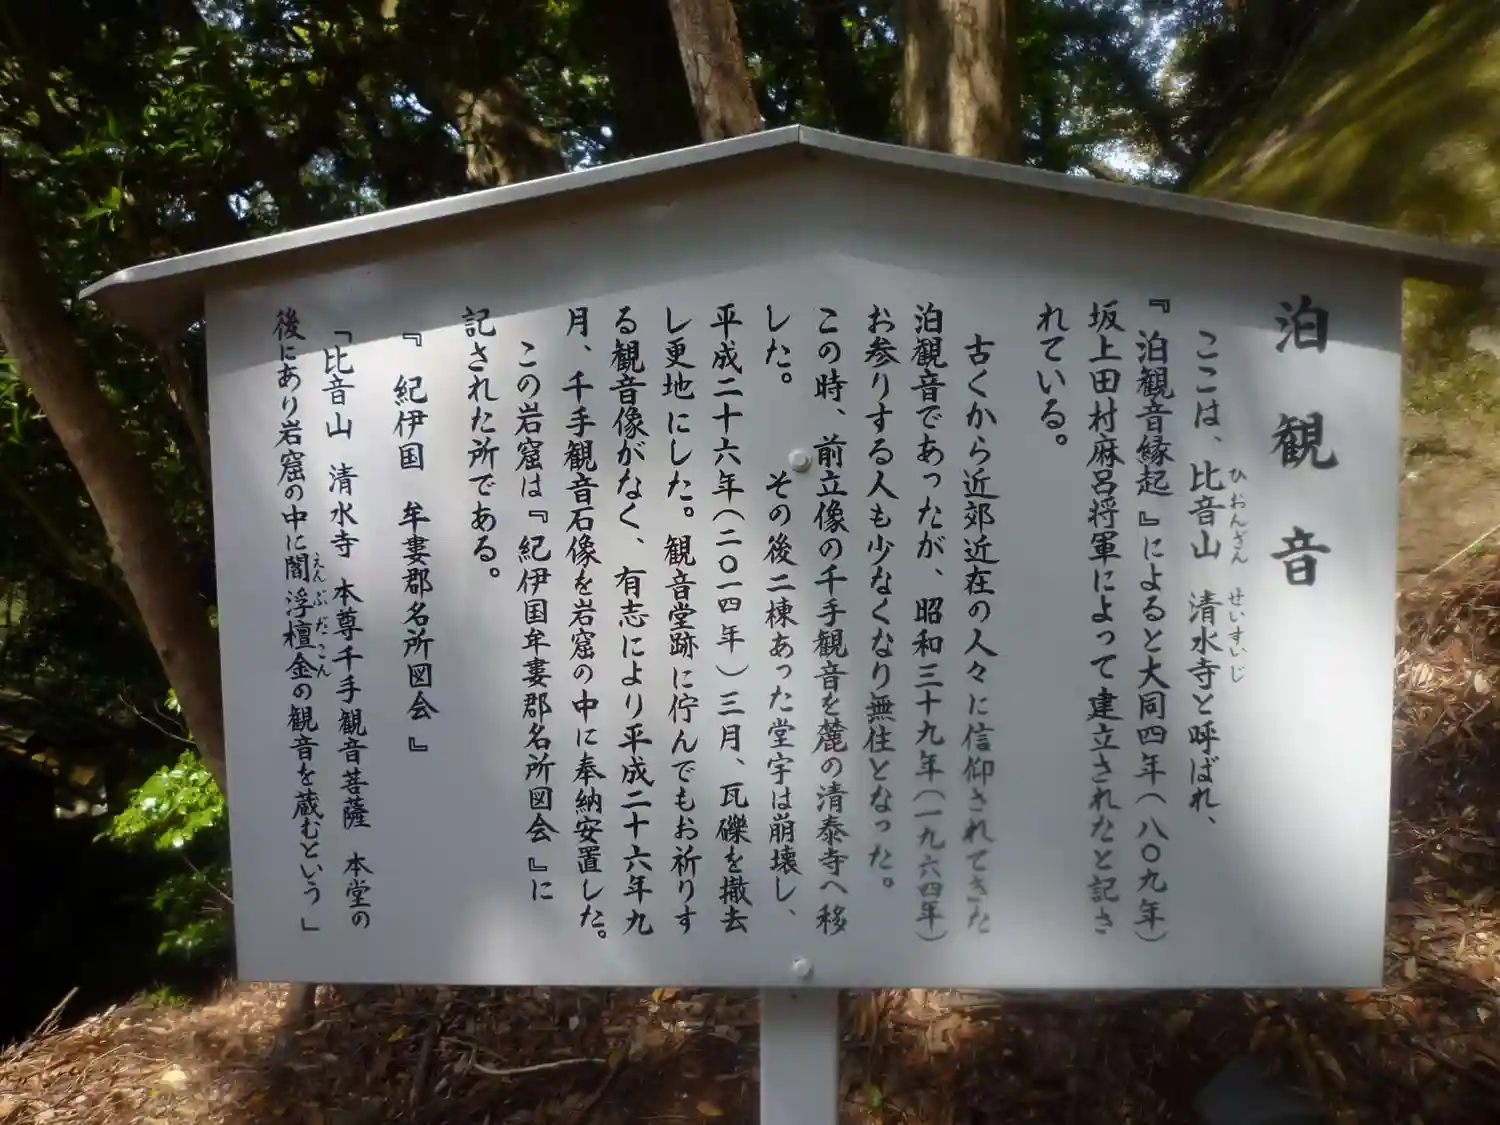 泊観音
ここは、比音山　清水寺と呼ばれ、
ひおんざん　せいすいじ
『泊観音縁起』によると大同四年（八〇九年）
坂上田村麻呂将軍によって建立されたと記さ
れている。
古くから近郊近在の人々に信仰されてきた
泊観音であったが、昭和三十九年（一九六四年）
お参りする人も少なくなり無住となった。
この時、前立像の千手観音を麓の清泰寺へ移
した。　　その後二棟あった堂宇は崩壊し、
平成二十六年（二〇一四年）三月、瓦礫を撤去
し更地にした。観音堂跡に佇んでもお祈りす
る観音像がなく、有志により平成二十六年九
月、千手観音石像を岩窟の中に奉納安置した。
この岩窟は『紀伊国牟婁郡名所図会』に
記された所である。
『紀伊国　牟婁郡名所図会』
「比音山　清水寺　本尊千手観音菩薩　本堂の
後にあり岩窟の中に閻浮檀金の観音を蔵むという」
えんぶだこん